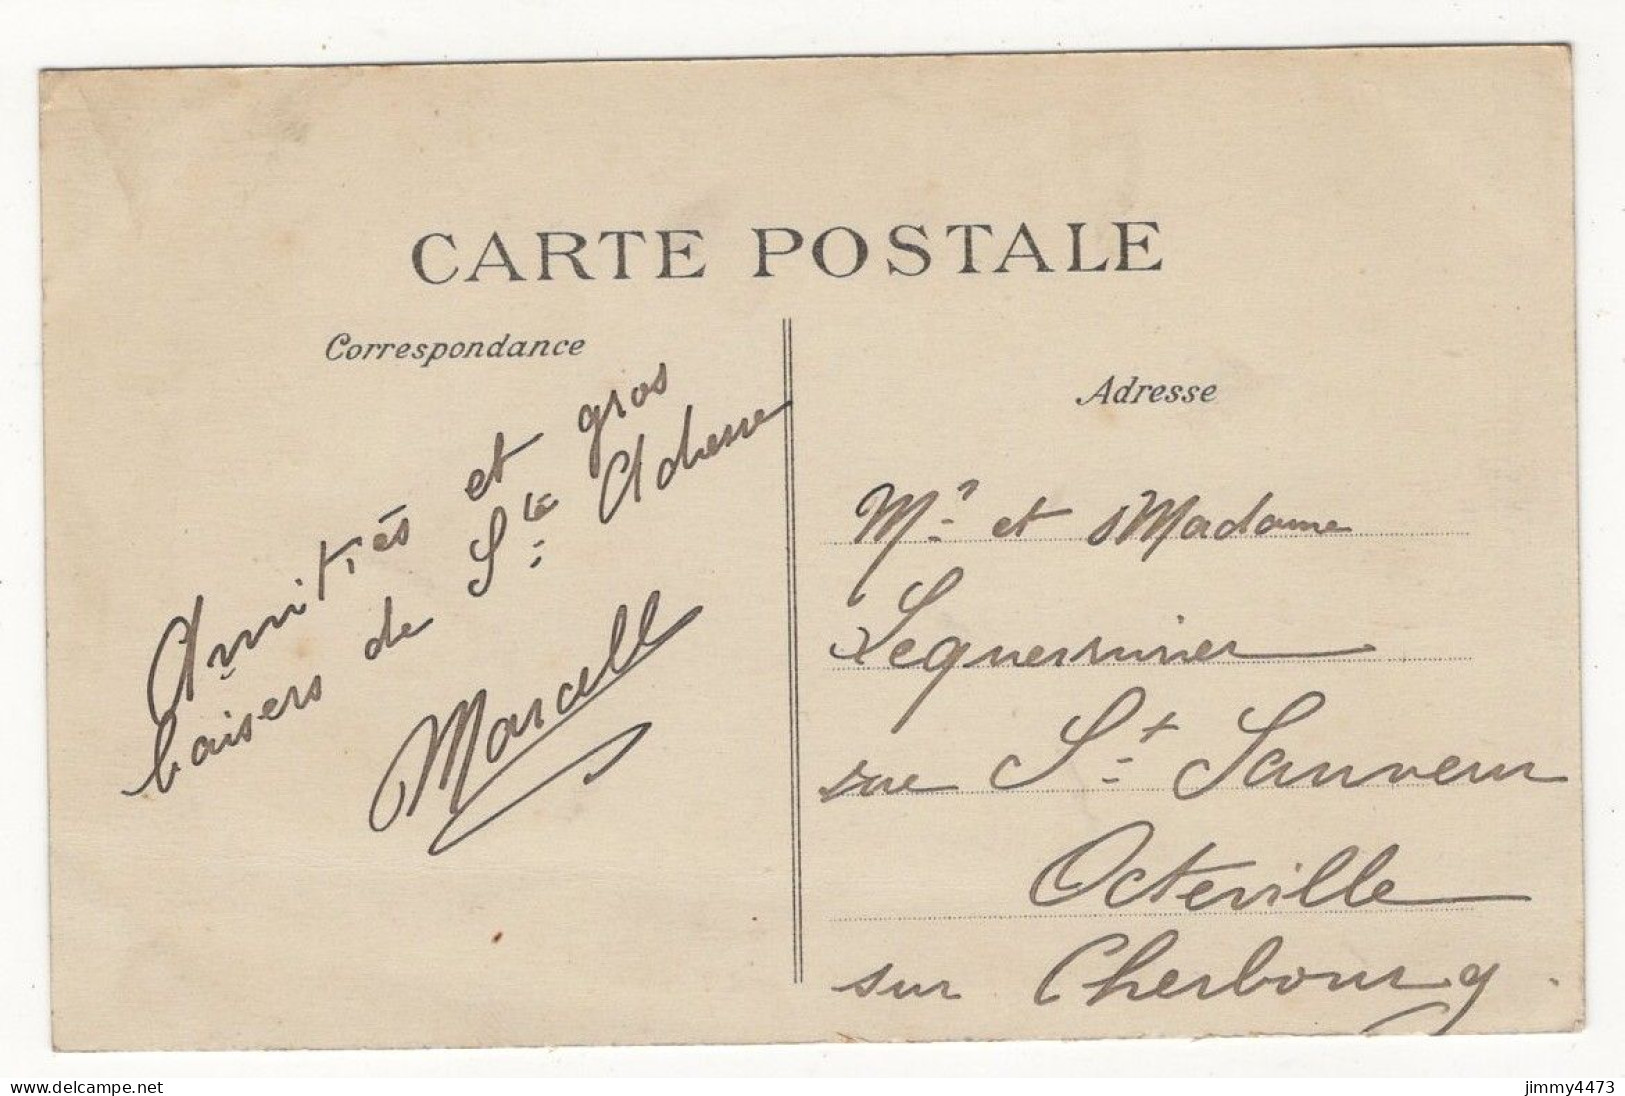 CARTE POSTALE
Correspondance
Amitiés et gros
baisers de Ste Adresse
Marcell
Adresse
Mr et Madame
Lequerminier
rue St Sauveur
Octeville
sur Cherbourg
www.delcampe.net
jimmy4473